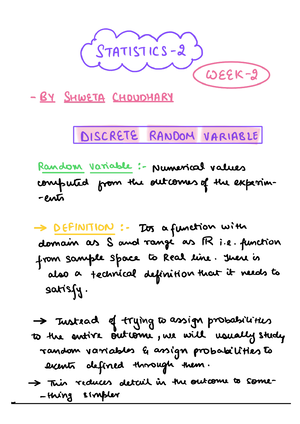 STATISTICS-2
WEEK-2
- BY SHWETA CHOUDHARY
DISCRETE RANDOM VARIABLE
Random variable :- Numerical values
computed from the outcomes of the experim-
-ents
→ DEFINITION :- Its a function with
domain as S and range as ℝ i.e. function
from sample space to Real line. There is
also a technical definition that it needs to
satisfy.
→ Instead of trying to assign probabilities
to the entire outcome, we will usually study
random variables & assign probabilities to
events defined through them.
→ This reduces detail in the outcome to some-
-thing simpler